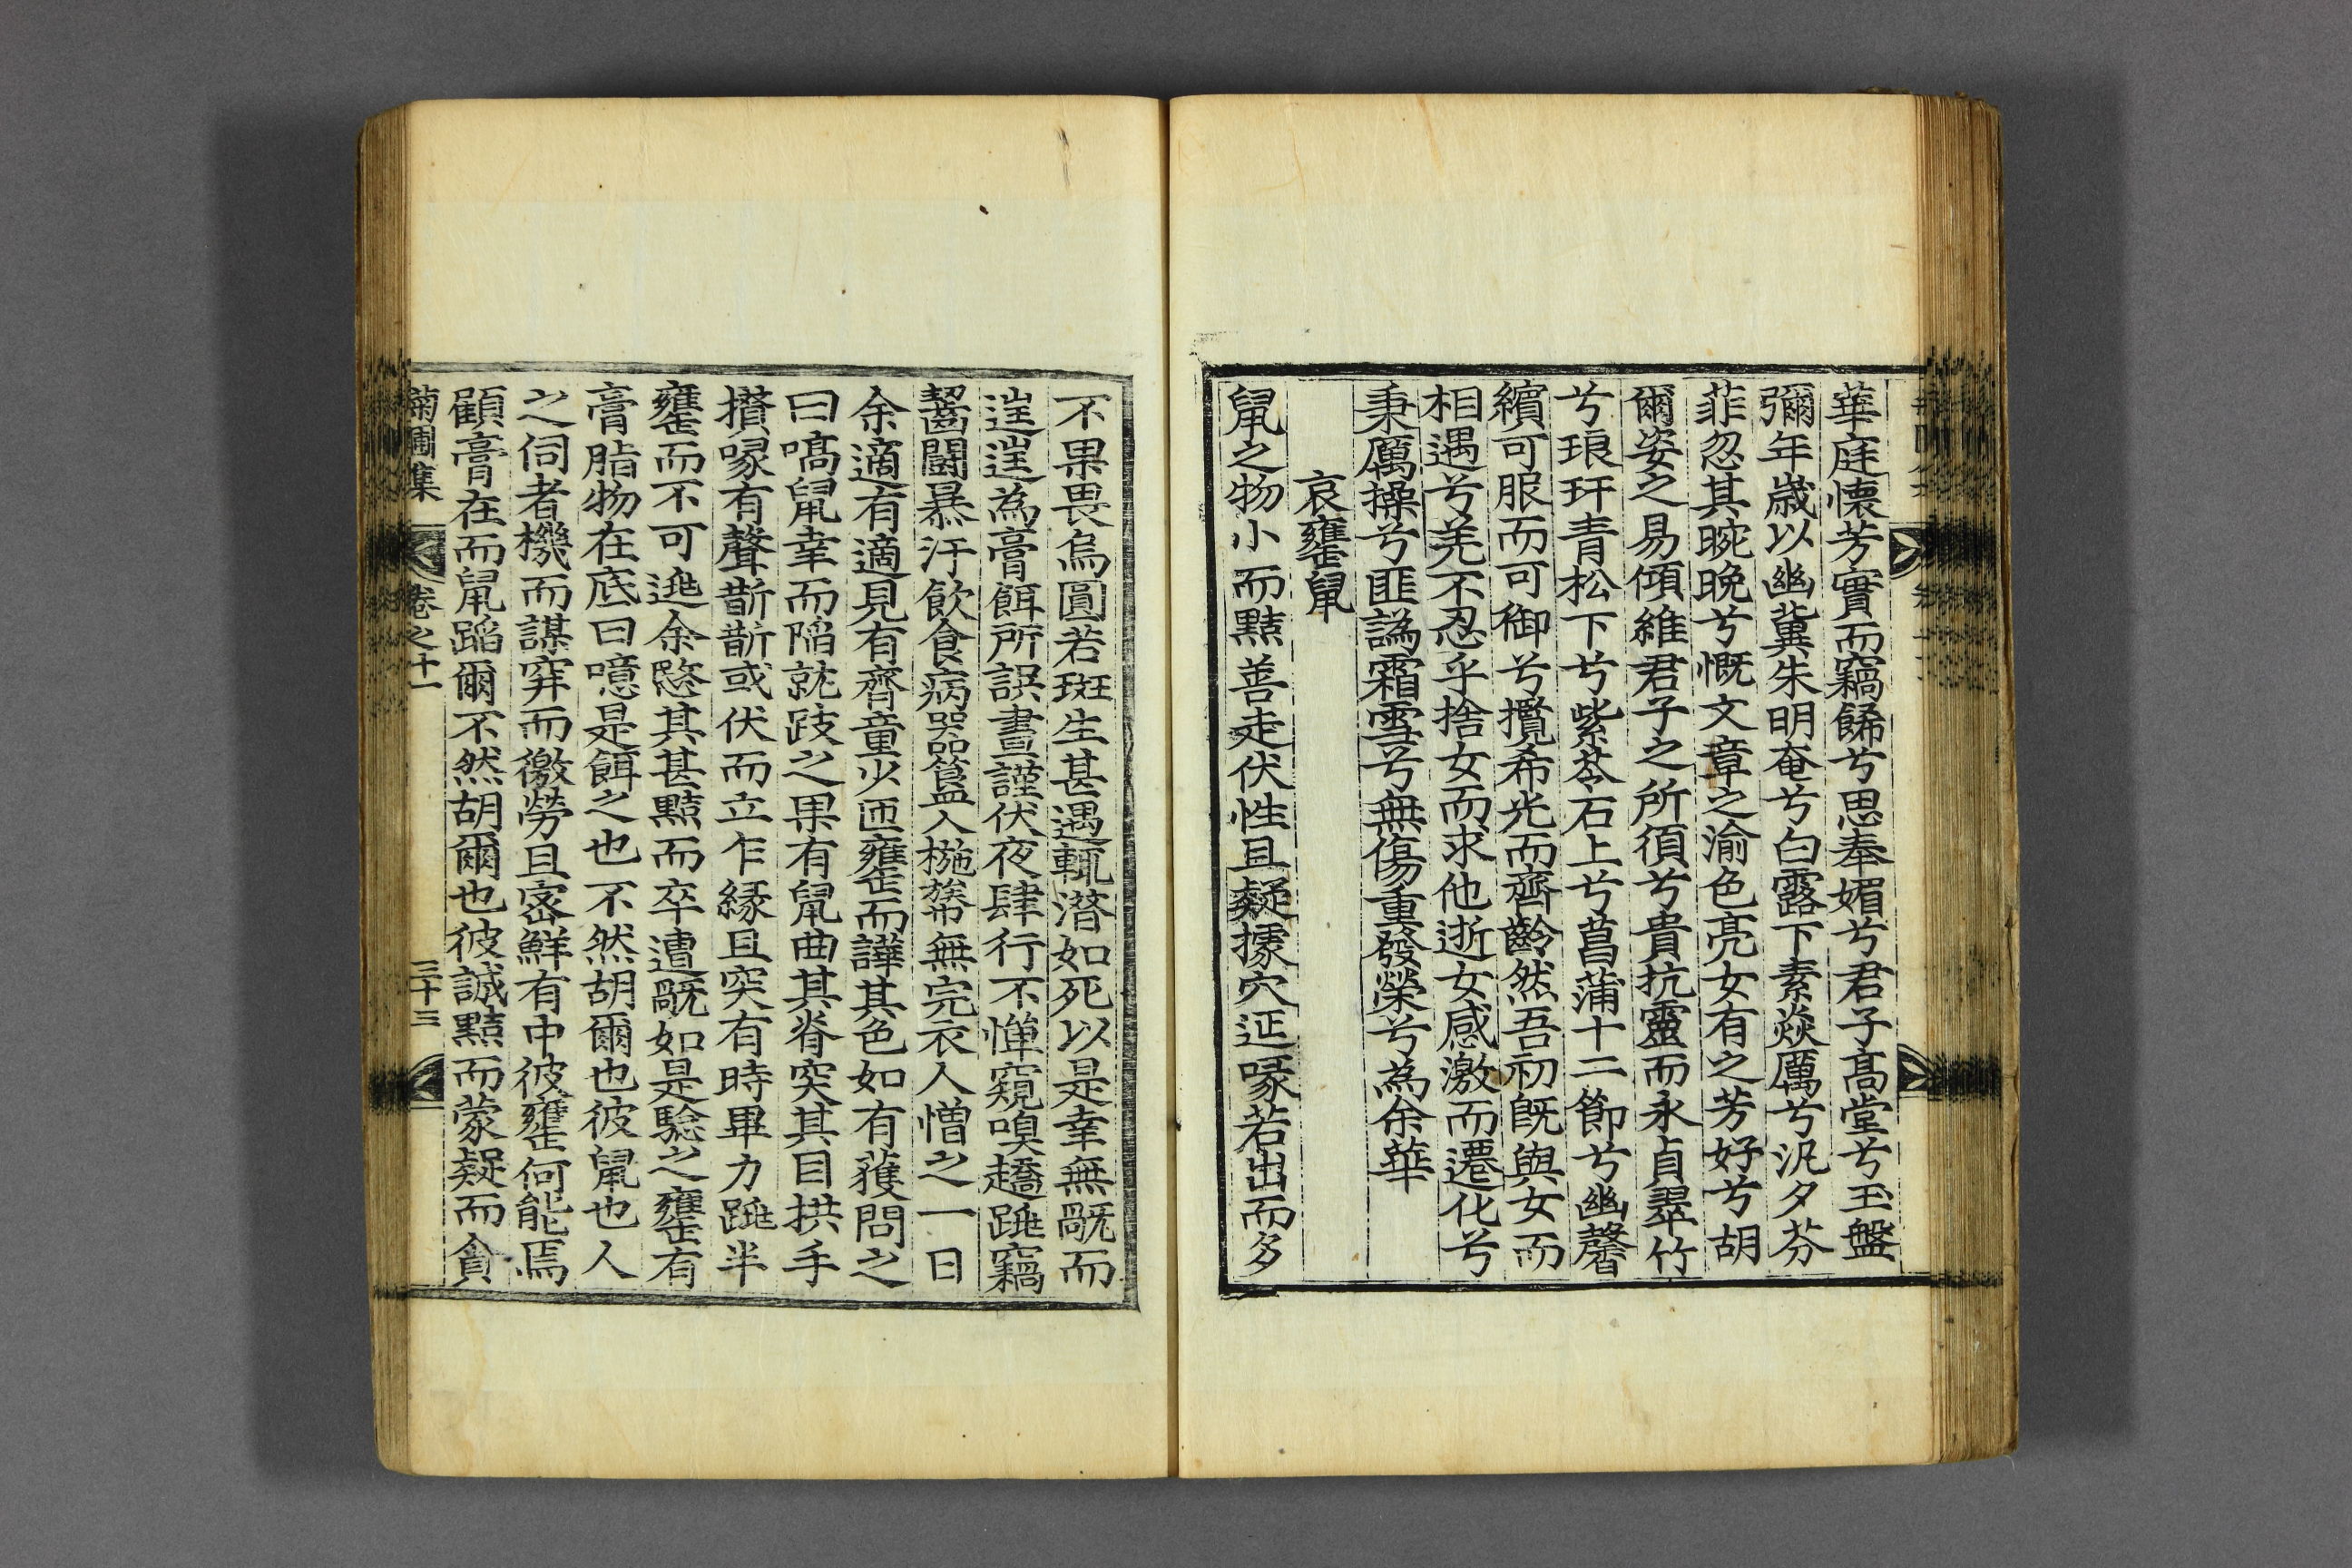 華庭懷芳實而竊餙兮思奉媚兮君子高堂兮玉盤
彌年歲以幽冀朱明奄兮白露下素焱厲兮汎夕芬
菲忽其晼晚兮慨文章之渝色亮女有之芳好兮胡
爾姿之易傾維君子之所須兮貴抗靈而永貞翠竹
兮琅玕青松下兮紫苓石上兮菖蒲十二節兮幽馨
繽可服而可御兮攬希光而齊齡然吾初旣與女而
相遇兮羌不忍乎捨女而求他逝女感激而遷化兮
秉厲操兮匪譌霜雪兮無傷重發榮兮為余華
哀罋鼠
鼠之物小而黠善走伏性且疑據穴延喙若出而多
不果畏烏圓若班生甚遇輒潛如死以是幸無戱而
逞逞為膏餌所誤晝謹伏夜肆行不憚窺嗅趫跳竊
齧齒鬪暴汙飲食病器筥盆人椸桁無完衣人憎之一日
余適有適見有齊童少匝罋而譁其色如有獲問之
曰嗃鼠幸而陷就跂之果有鼠曲其脊突其目拱手
攢喙有聲斮斮或伏而立乍緣且突有時畢力跳半
罋而不可逃余愍其甚黠而卒遭戱如是驗之罋有
膏脂物在底曰噫是餌之也不然胡爾也彼鼠也人
之伺者機而謀穽而徼勞且密鮮有中彼罋何能焉
顧膏在而鼠蹈爾不然胡爾也彼誠黠而蒙疑而貪
菊圃集
卷之十一
三十三